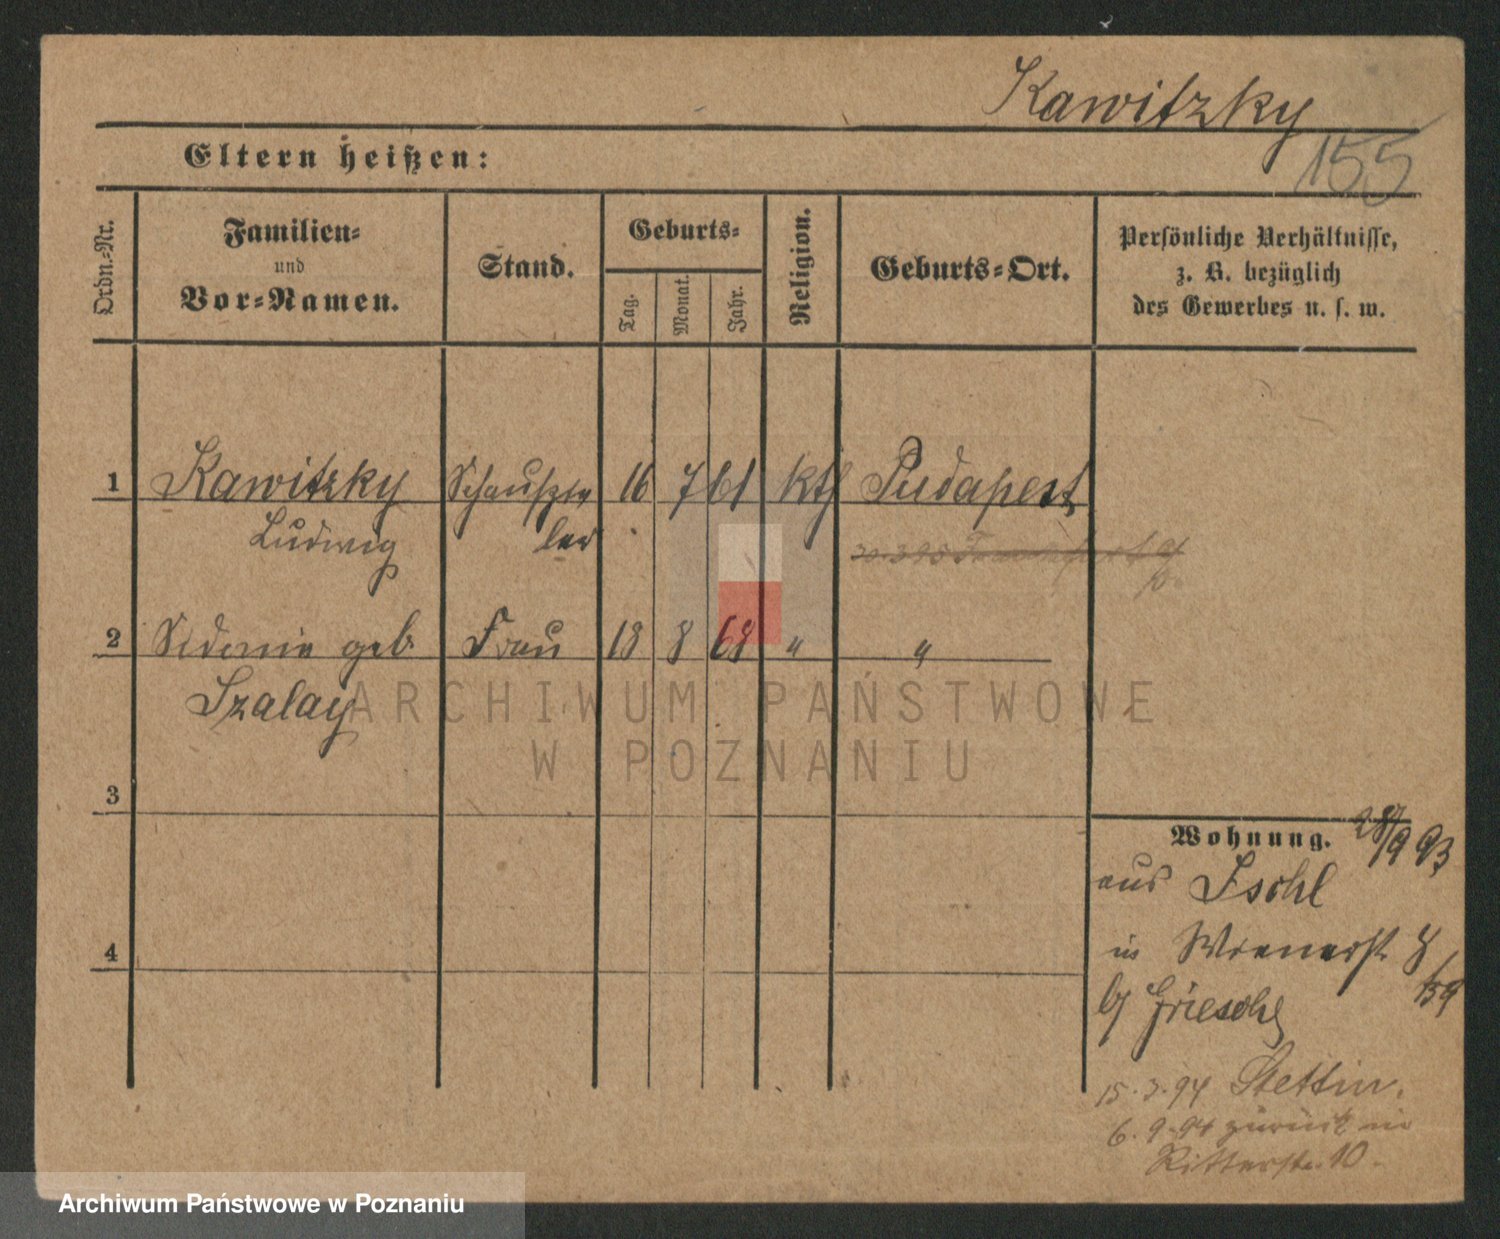 Kawitzky
155
Eltern heißen:
Ordn.-Nr.
Familien-
und
Vor-Namen.
Stand.
Geburts-
Tag.
Monat.
Jahr.
Religion.
Geburts-Ort.
Persönliche Verhältnisse,
z. B. bezüglich
des Gewerbes u. s. w.
1 Kawitzky Schauspie 16 7 61 kth Budapest
Ludwig ler
30.3.95 Frankfurt a/
O.
2 Sidonie geb. Frau 18 8 68 " "
Szalay
ARCHIWUM PAŃSTWOWE
W POZNANIU
3
Wohnung. 28/9 93
aus Ischl
4 in Wienerst 8
b/ Griesche
15.3.94 Stettin.
6.9.94 zurück in
Ritterstr. 10.
Archiwum Państwowe w Poznaniu